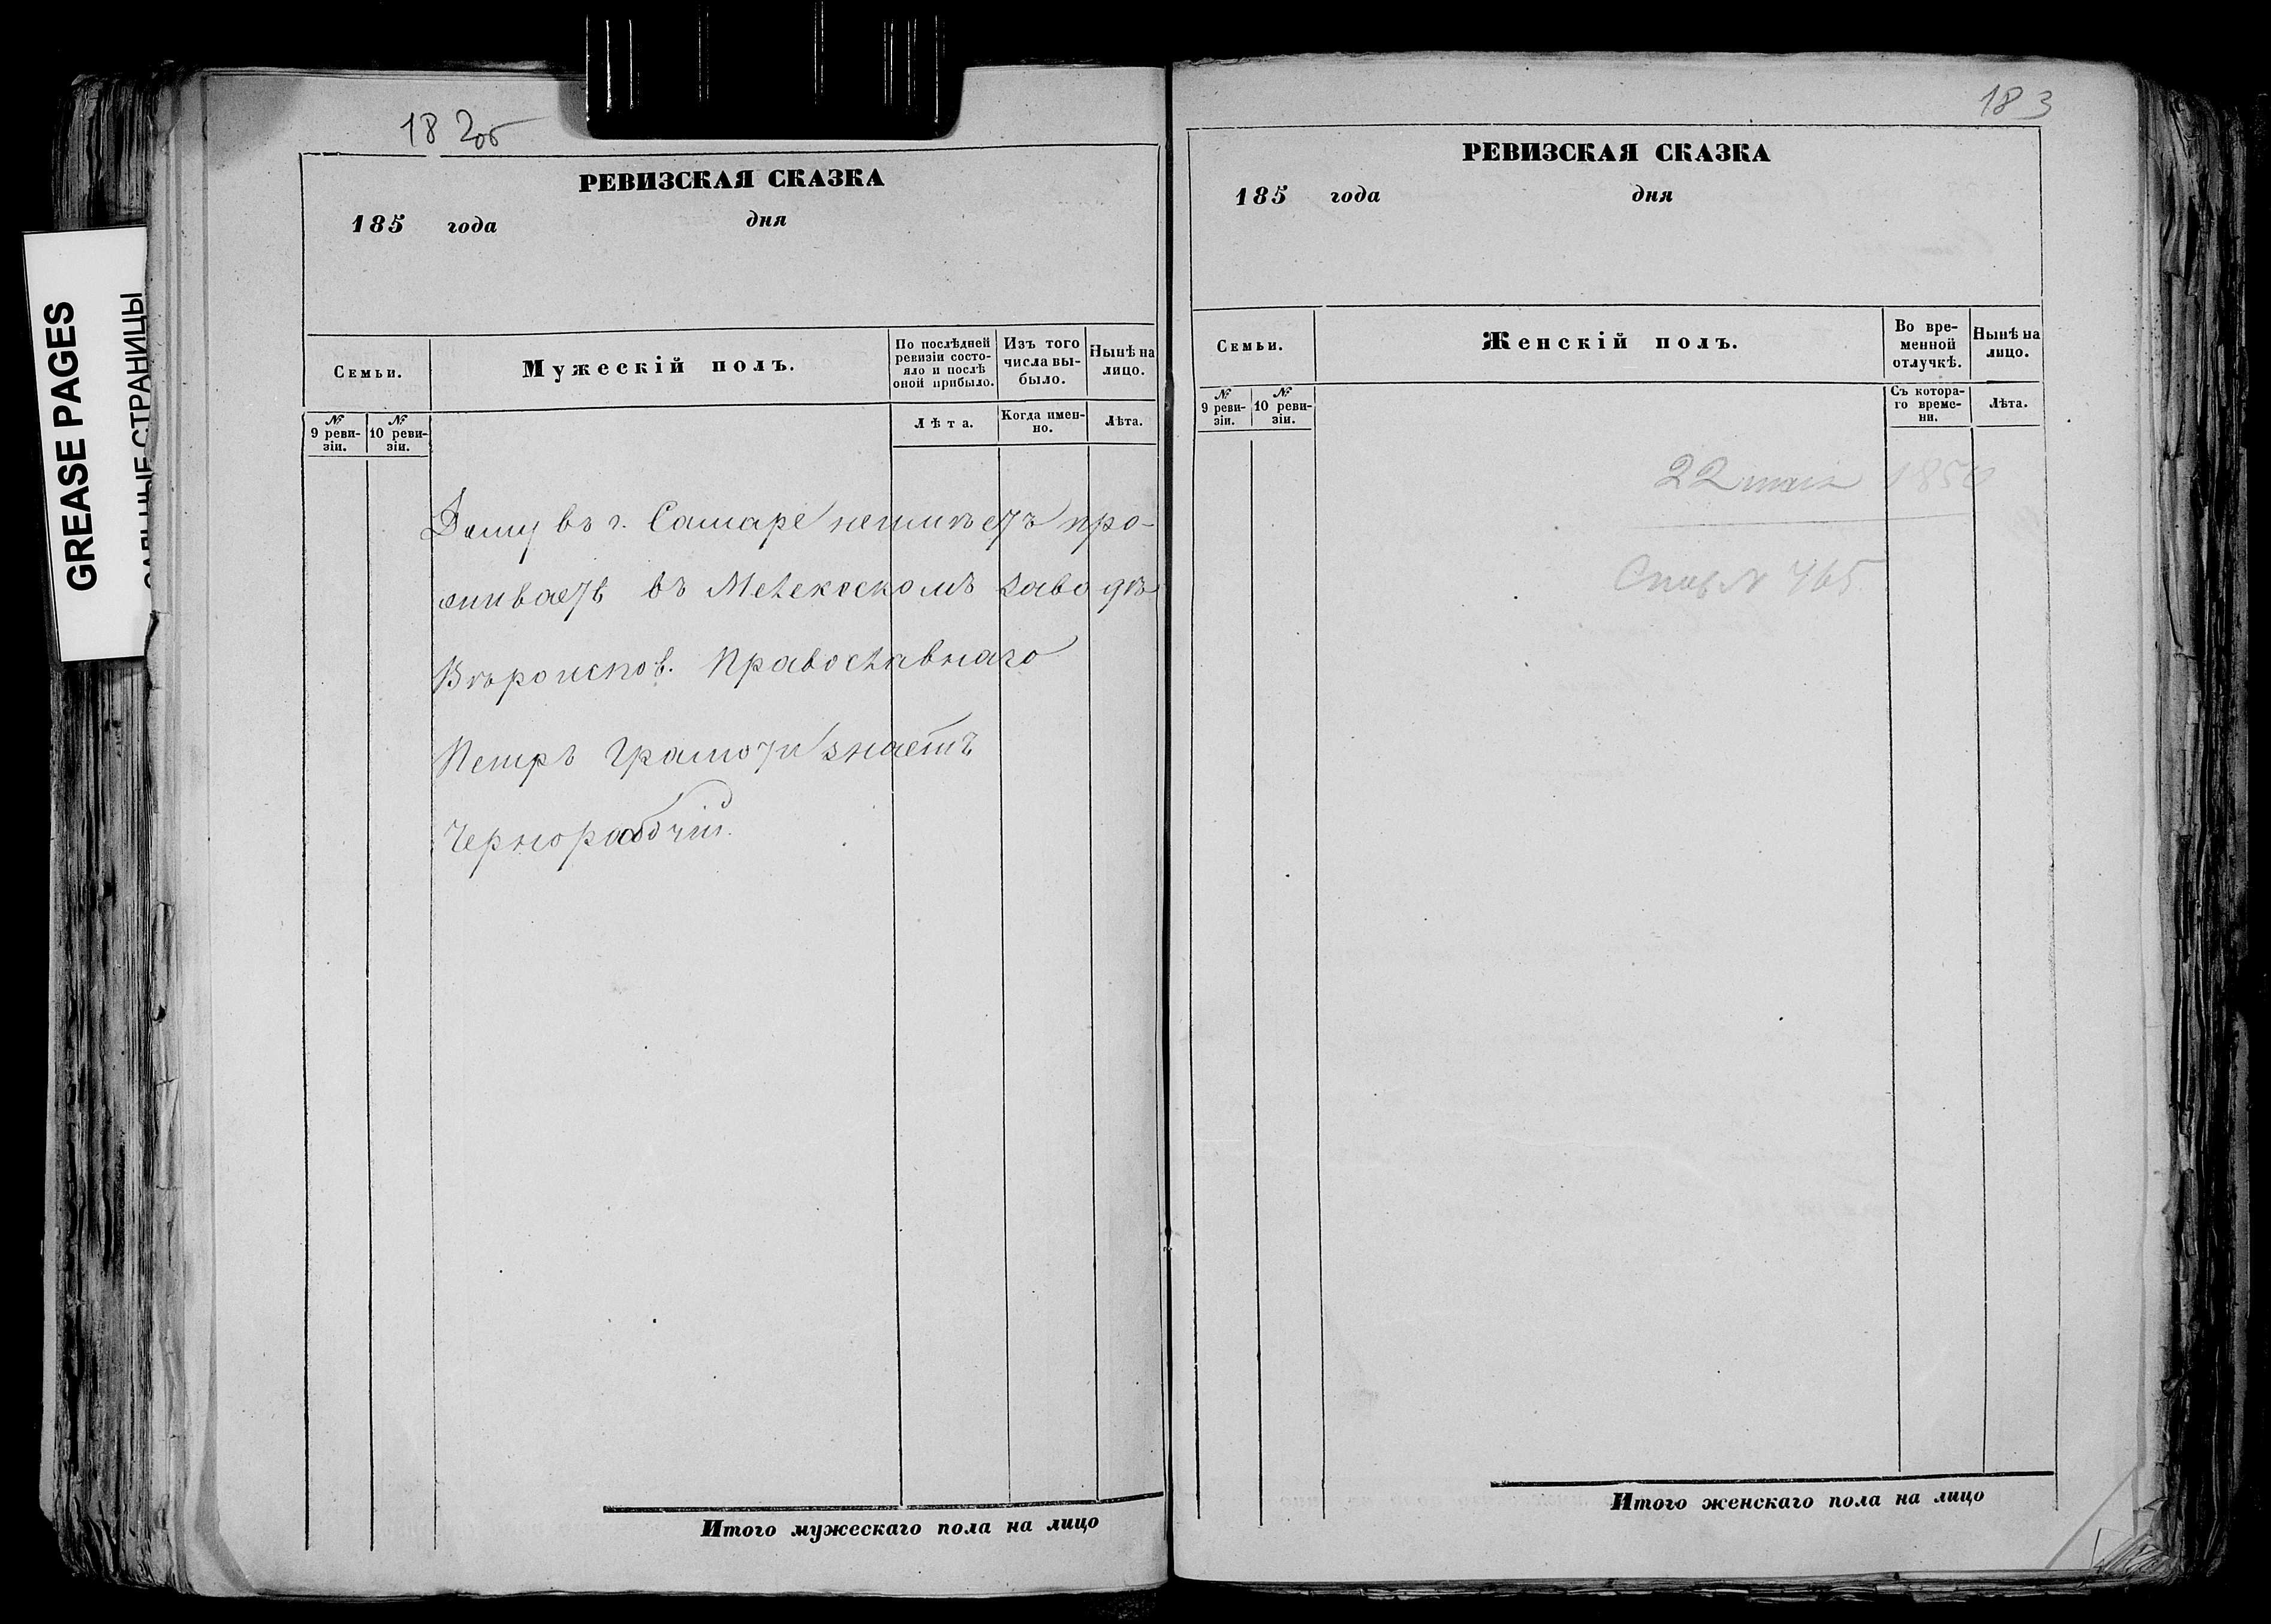 GREASE PAGES
СТРАНИЦЫ
182об
РЕВИЗСКАЯ СКАЗКА
185 года дня
Семьи.
Мужескій полъ.
По послѣдней ревизіи состо-
яло и послѣ оной прибыло.
Изъ того числа вы-
было.
Нынѣ на лицо.
№ 9 реви-
зіи.
№ 10 реви-
зіи.
Лѣта.
Когда имен-
но.
Лѣта.
Дому въ г. Самаре неимѣетъ про-
живаетъ въ Мелекескомъ заводѣ
Вѣроиспов. Православнаго
Петръ грамоти знаетъ
Чернорабочій.
Итого мужескаго пола на лицо
183
РЕВИЗСКАЯ СКАЗКА
185 года дня
Семьи.
Женскій полъ.
Во вре-
менной
отлучкѣ.
Нынѣ на
лицо.
№ 9 реви-
зіи.
№ 10 реви-
зіи.
Съ котора-
го време-
ни.
Лѣта.
22 мая 1850
№ 465
Итого женскаго пола на лицо